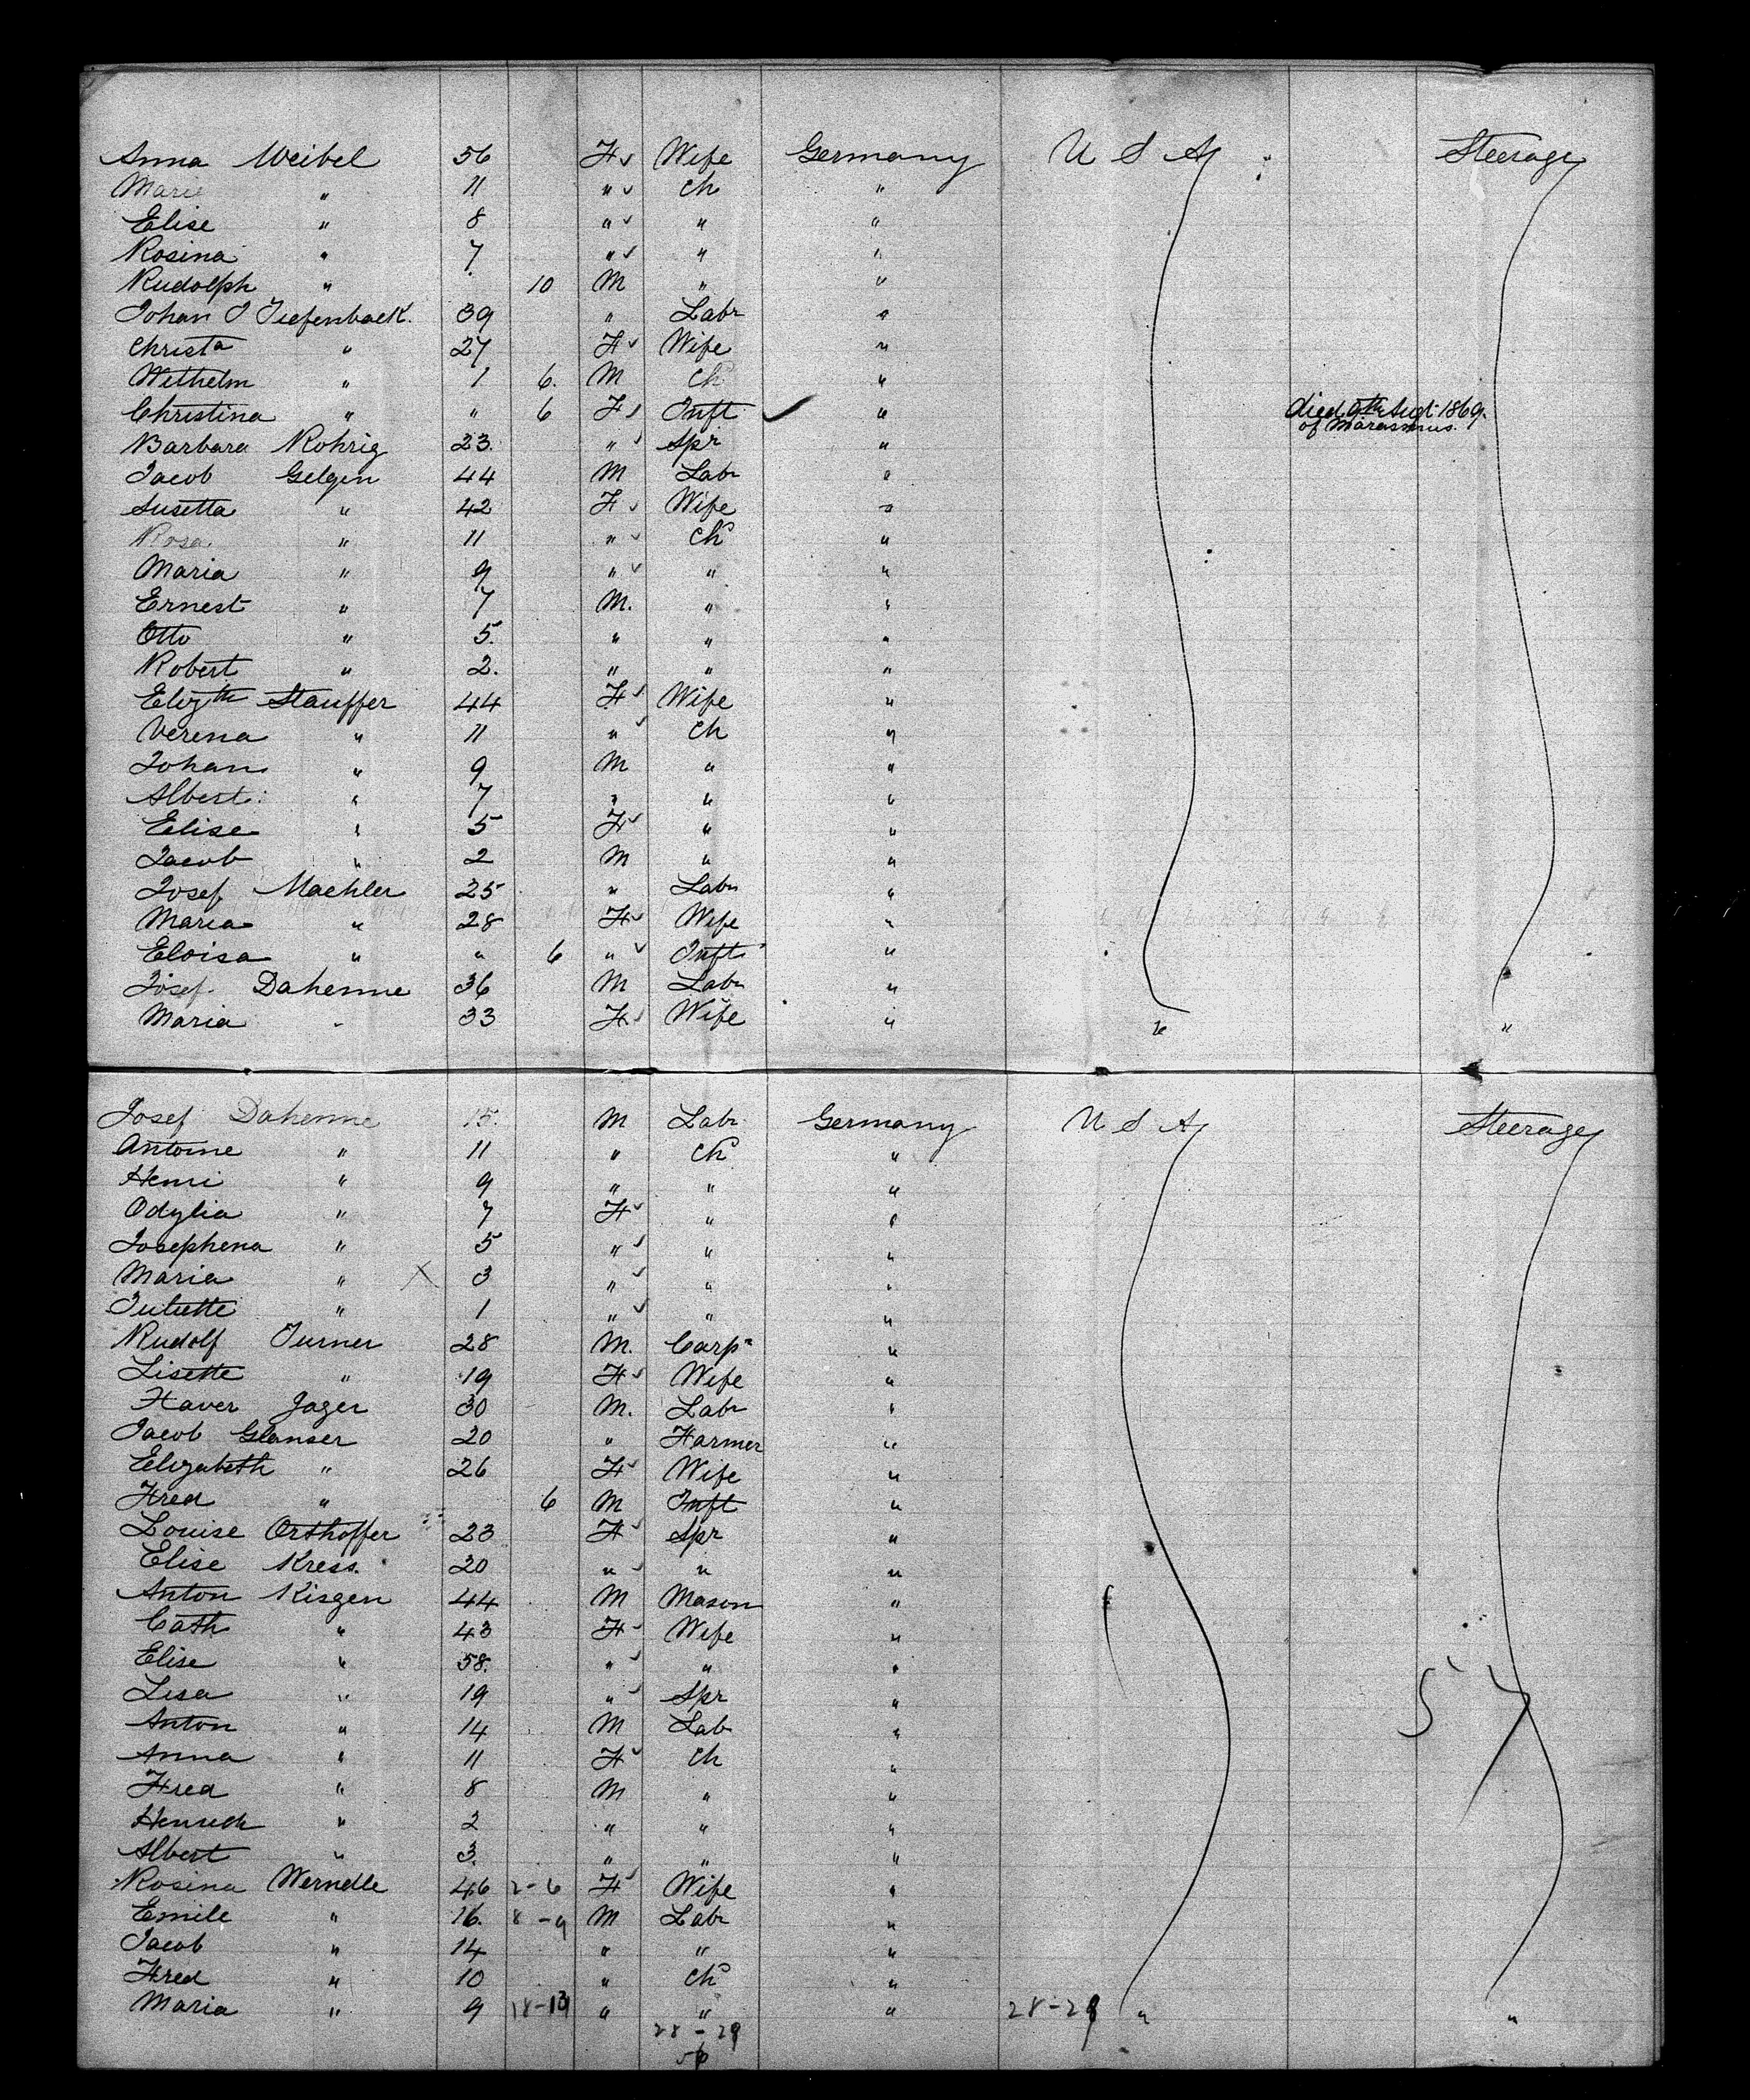 Anna Weibel 56 F Wife Germany U S A Steerage
Marie " 11 " Ch "
Elise " 8 " " "
Rosina " 7 " " "
Rudolph " 10 M " "
Johan J Tiefenback. 39 " Labr "
Christa " 27 F Wife "
Wilhelm " 1 6. M Ch "
Christina " " 6 F Inft " died 9th Augt 1869. of Marasmus.
Barbara Rohrig 23. " Spr "
Jacob Gelgen 44 M Labr "
Susetta " 42 F Wife "
Rosa " 11 " Ch "
Maria " 9 " " "
Ernest " 7 M. " "
Otto " 5. " " "
Robert " 2. " " "
Elizth Stauffer 44 F Wife "
Verena " 11 " Ch "
Johan " 9 M " "
Albert " 7 " " "
Elise " 5 F " "
Jacob " 2 M " "
Josef Maehler 25 " Labr "
Maria " 28 F Wife "
Eloisa " " 6 " Inft "
Josef Dahenne 36 M Labr "
Maria " 33 F Wife " " "
Josef Dahenne 15. M Labr Germany U S A Steerage
Antoine " 11 " Ch "
Henri " 9 " " "
Odylia " 7 F " "
Josephena " 5 " " "
Maria " X 3 " " "
Juliette " 1 " " "
Rudolf Turner 28 M. Carpr "
Lisette " 19 F Wife "
Xaver Jager 30 M. Labr "
Jacob Glanser 20 " Farmer "
Elizabeth " 26 F Wife "
Fred " 6 M Inft "
Louise Orthoffer 23 F Spr "
Elise Kress. 20 " " "
Anton Kisgen 44 M Mason "
Cath " 43 F Wife "
Elise " 58. " " "
Lisa " 19 " Spr "
Anton " 14 M Lab "
Anna " 11 F Ch "
Fred " 8 M " "
Henrich " 2 " " "
Albert " 3. " " "
Rosina Werndle 46 2-6 F Wife "
Emile " 16. 8-9 M Labr "
Jacob " 14 " " "
Fred " 10 " Ch "
Maria " 9 18-19 " " " 28-29 " "
28-29